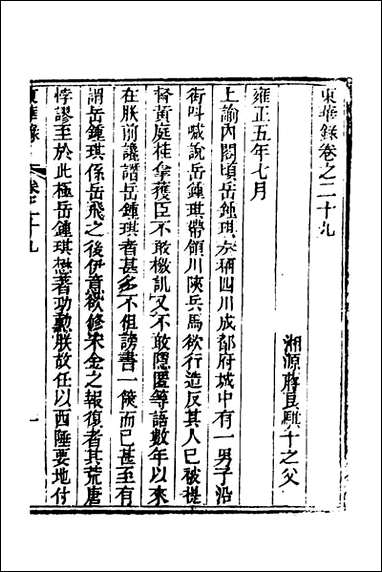 東華錄卷之二十九
湘源蔣良騏千之父
雍正五年七月
上諭內閣頃岳鍾琪奏稱四川成都府城中有一男子沿
街叫喊說岳鍾琪帶領川陝兵馬欲行造反其人已被提
督黃庭桂拿獲臣不敢檄訊又不敢隱匿等語數年以來
在朕前讒譖岳鍾琪者甚多不但謗書一篋而已甚至有
謂岳鍾琪係岳飛之後伊意欲修宋金之報復者其荒唐
悖謬至於此極岳鍾琪懋著功勳朕故任以西陲要地付
東華錄
卷二十九
一